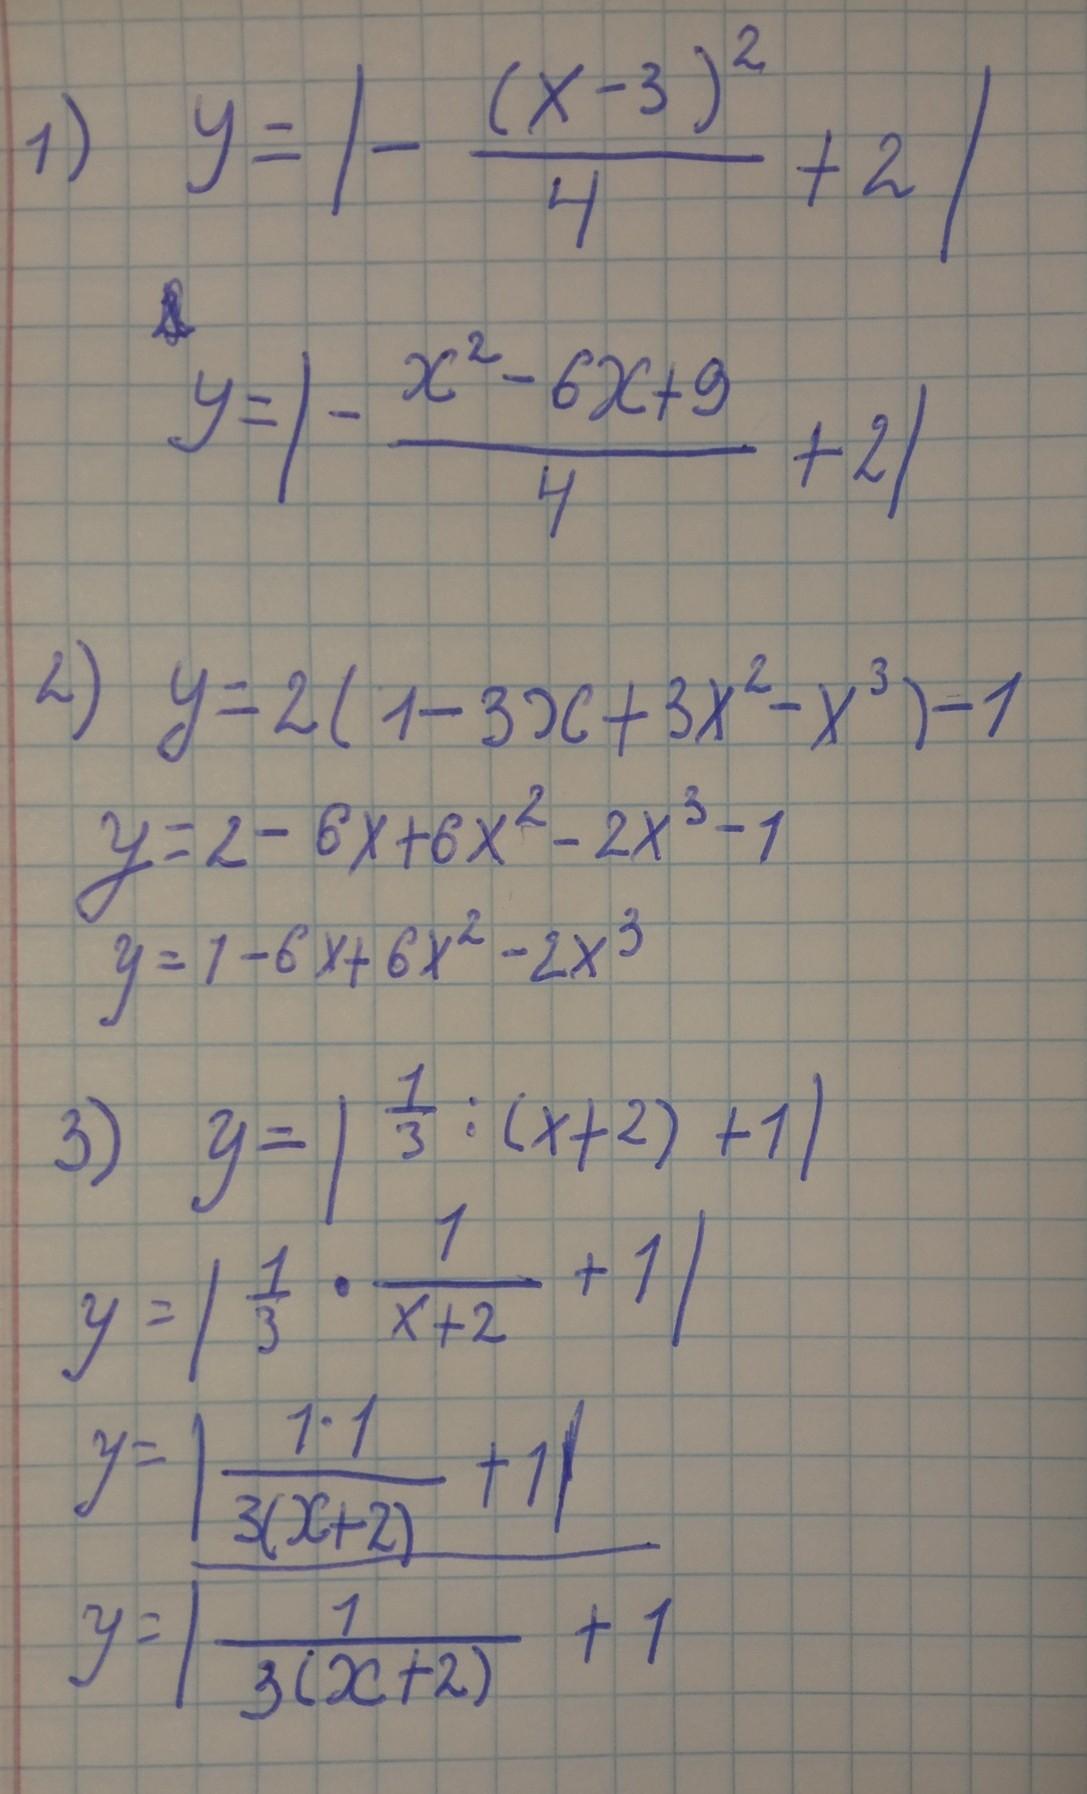 1) y = |- (x-3)²/4 + 2|
y = |- x² - 6x + 9/4 + 2|
2) y = 2(1 - 3x + 3x² - x³) - 1
y = 2 - 6x + 6x² - 2x³ - 1
y = 1 - 6x + 6x² - 2x³
3) y = | 1/3 : (x+2) + 1|
y = | 1/3 · 1/x+2 + 1|
y = | 1·1/3(x+2) + 1|
y = | 1/3(x+2) + 1